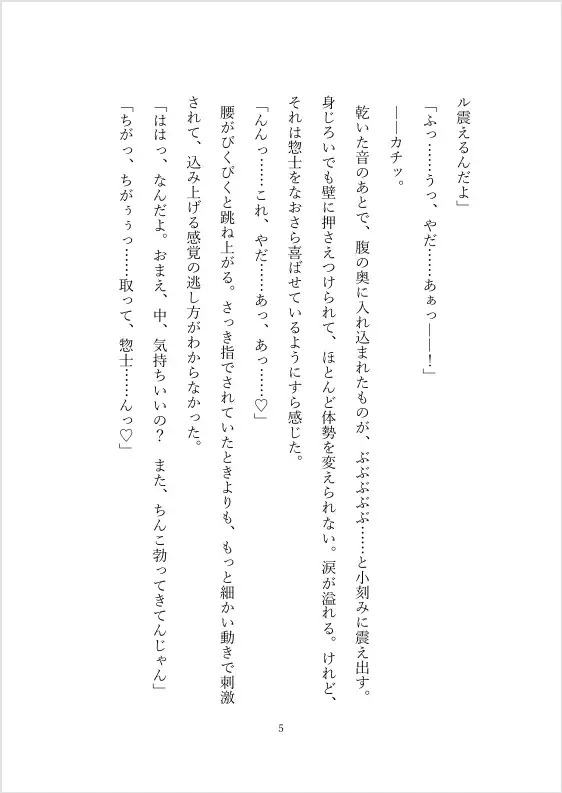 ル震えるんだよ」
「ふっ……うっ、やだ……あぁっ――！」
――カチッ。
乾いた音のあとで、腹の奥に入れ込まれたものが、ぶぶぶぶぶ……と小刻みに震え出す。
身じろいでも壁に押さえつけられて、ほとんど体勢を変えられない。涙が溢れる。けれど、
それは惣士をなおさら喜ばせているようにすら感じた。
「んんっ……これ、やだ……あっ、あっ……♡」
腰がぴくぴくと跳ね上がる。さっき指でされていたときよりも、もっと細かい動きで刺激
されて、込み上げる感覚の逃し方がわからなかった。
「ははっ、なんだよ。おまえ、中、気持ちいいの？　また、ちんこ勃ってきてんじゃん」
「ちがっ、ちがぅぅっ……取って、惣士……んっ♡」
5